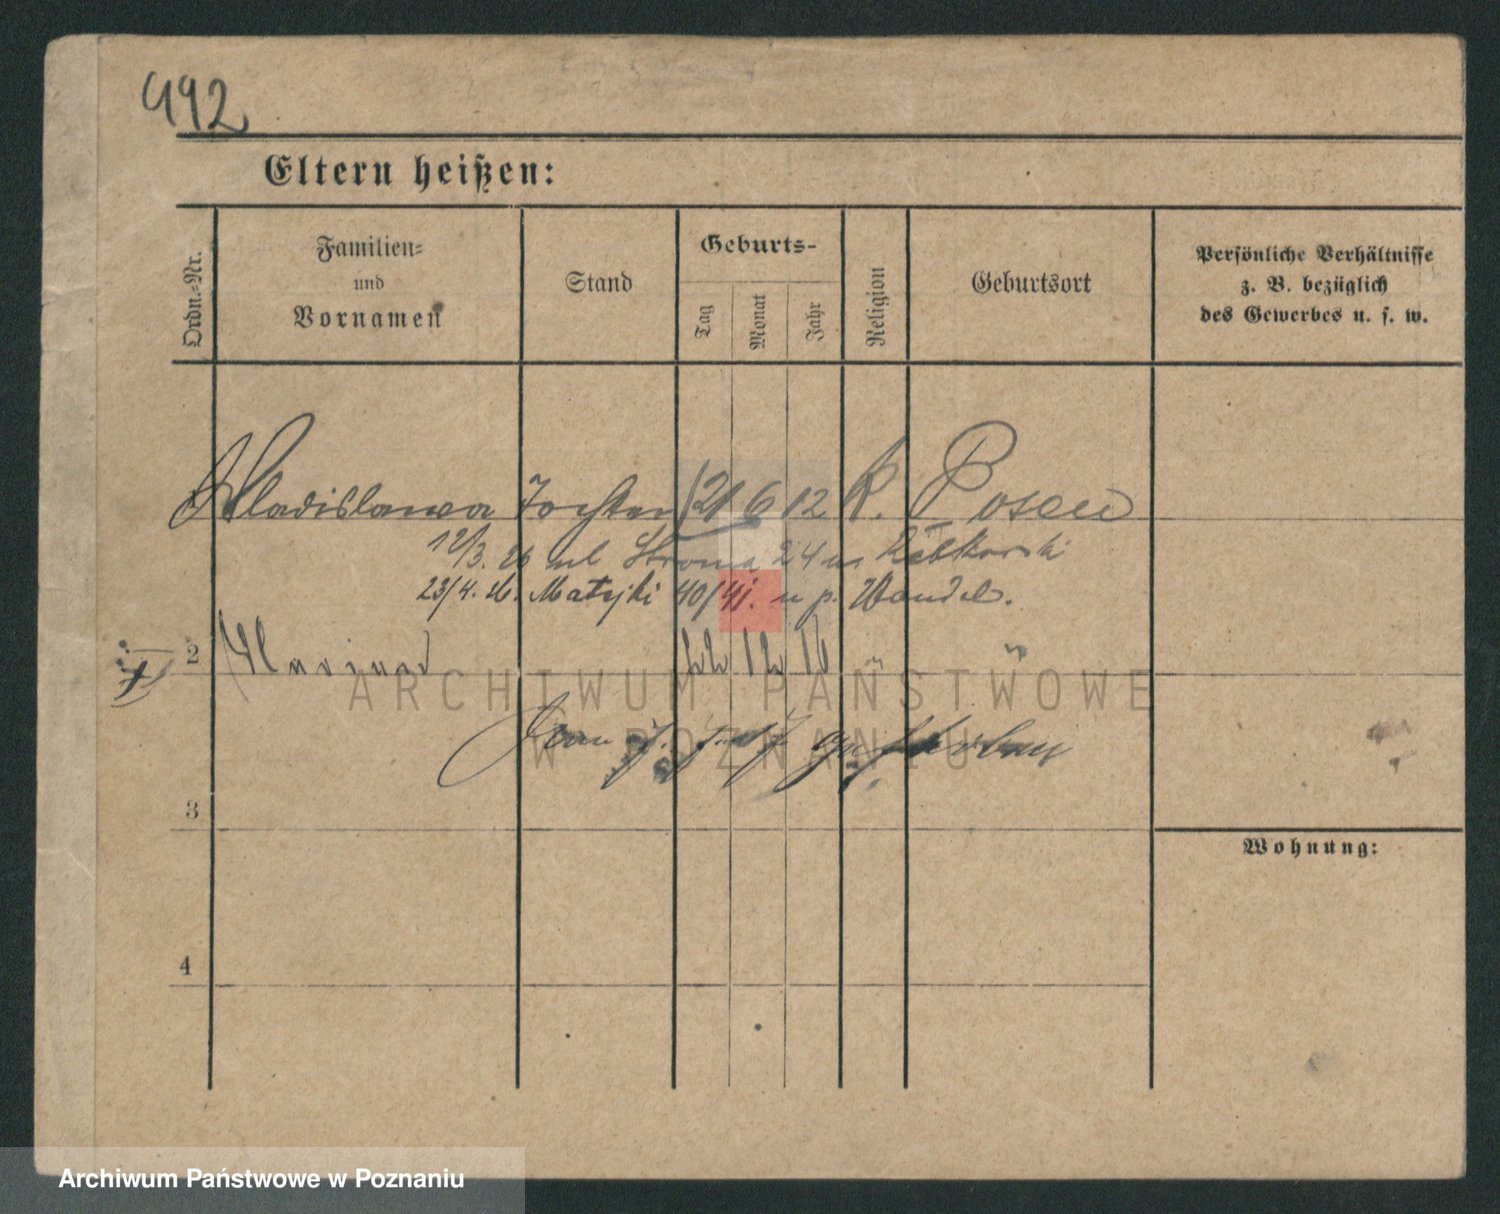 992
Eltern heißen:
Ordn.-Nr.
Familien-
und
Vornamen
Stand
Geburts-
Tag
Monat
Jahr
Religion
Geburtsort
Persönliche Verhältnisse
z. B. bezüglich
des Gewerbes u. s. w.
Wladislawa Tochter 21 6 12 K. Posen
12/3. 26 ul Stroma 24 u
23/4. 26. Matejki 40/41. u p. Wandel.
2
ARCHIWUM PAŃSTWOWE
W POZNANIU
3
Wohnung:
4
Archiwum Państwowe w Poznaniu